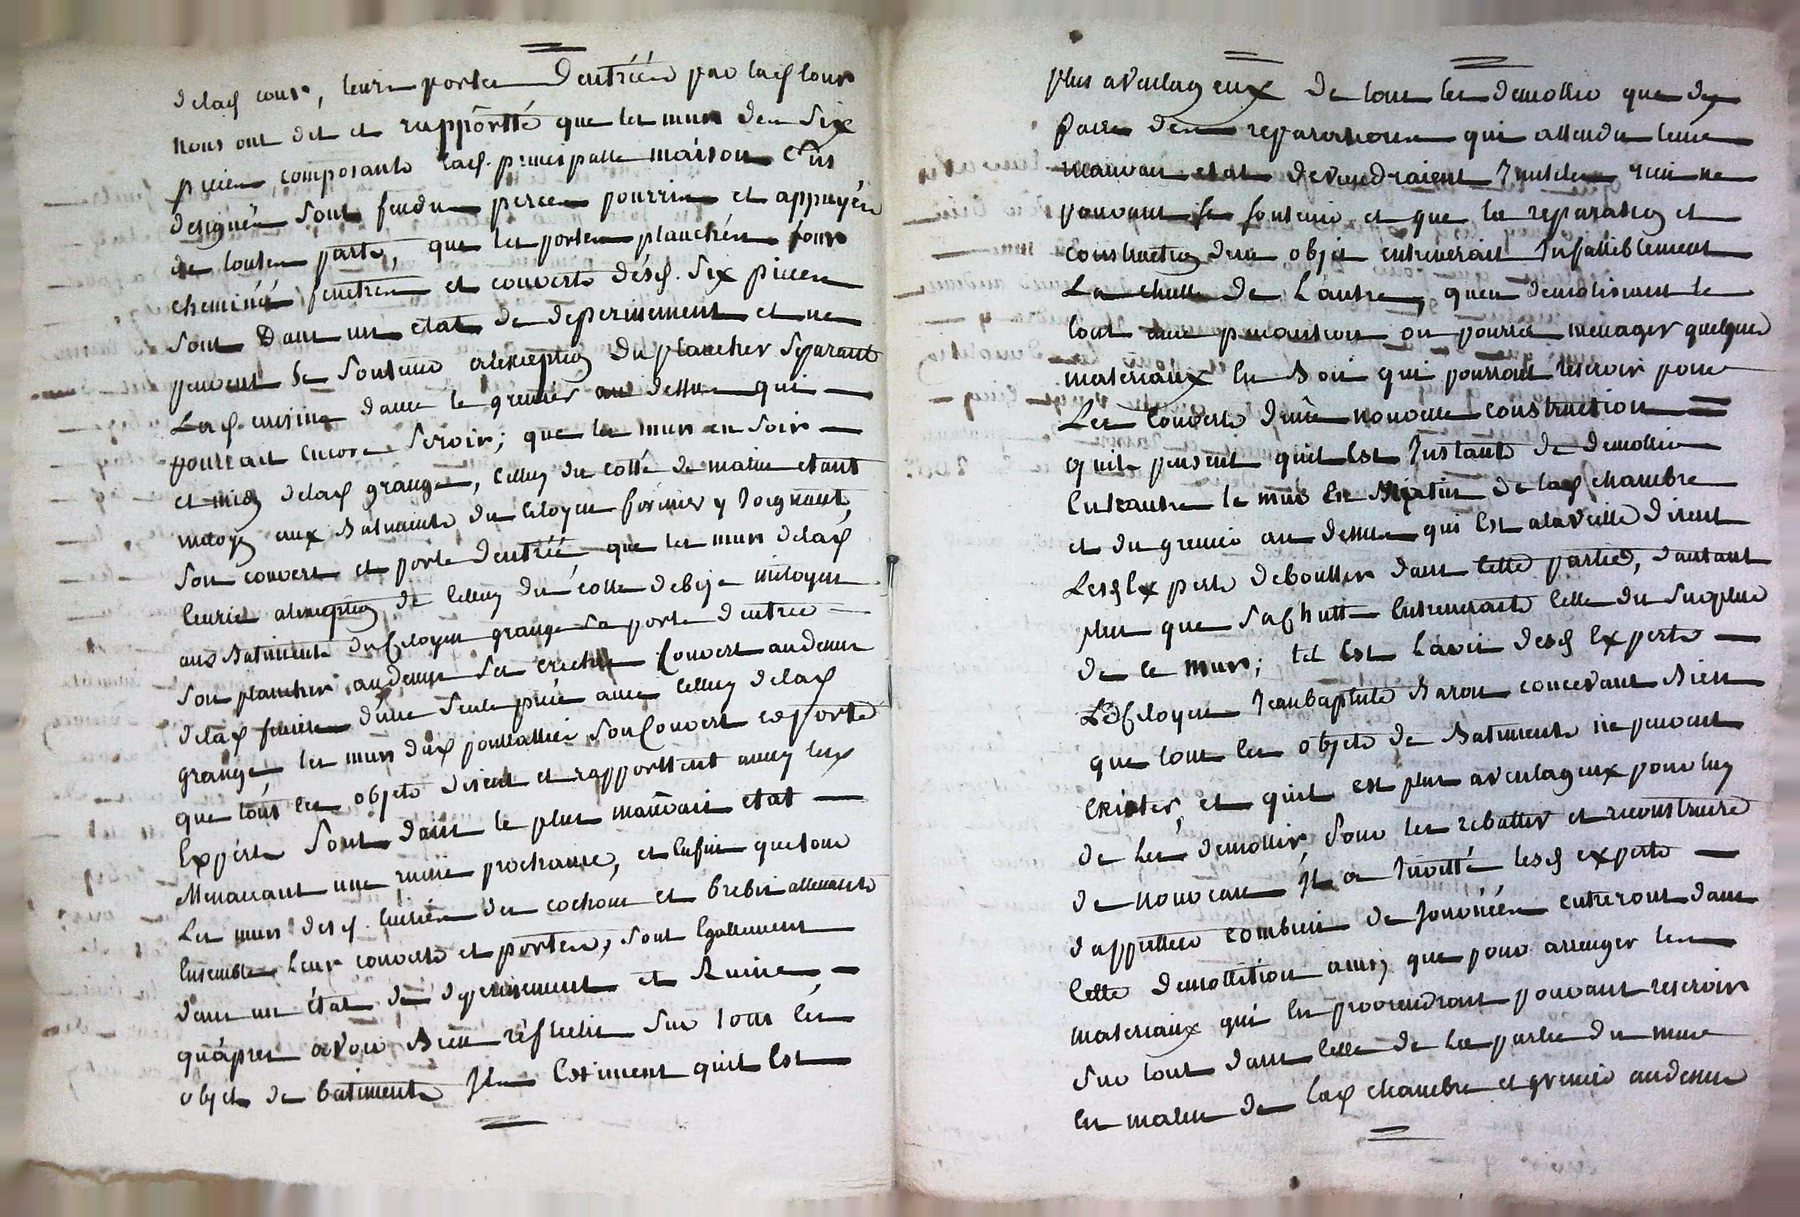 delad. cour, leurs portes d'entrées par lad. cour
nous ont dit et rapportté que les murs des six
pieces composants lad. principalle maison cÿ
designés sont fendus percés pourris et appuyés
de toutes parts, que les portes planchers fours
cheminées fenetres et couverts desd. six pieces
sont dans un etat de deperissement et ne
peuvent se soutenir alexception du plancher separant
Lad. cuisine davec le grenier au dessus qui
pourrait encore servoir; que les murs en soir
et midy delad. grange, celluy du cotté de matin etant
mitoyen aux batiments du citoyen fornier y joignant,
son couvert et porte dentrée, que les murs delad.
leurie alexception de celluy du cotte debise mitoyen
aux batiments du Citoyen grange sa porte dentrée
son plancher au dessus ses creches couvert au dessus
delad. d'une seule piece avec celluy delad.
grange, les murs dud. poullallier son Couvert et porte
que tous les objets disent et rapporttent avecq lesd.
Experts sont dans le plus mauvais etat
Menaceant une ruine prochaine, et enfin que tous
Les murs desd. des cochons et brebis attenants
Ensembles leur couverts et portes, sont Egallement
dans un état de deperissement et Ruine,
qu'apres avoir Bien réfléchit sur tous les
objets de batiments Jls Estiment quil Est
plus aventageux de tous les demollir que de
faire des reparations qui attendu leur
mauvais etat deviendraient Jnutiles rien ne
pouvant se soutenir et que la reparation et
construction dun objet entrenerait Jnfalliblement
La chutte de L'autre, quen demolissant le
tout avec precaution on pourra menager quelques
materiaux En Bois qui pourront reservoir pour
Les Couverts d'une nouvelle construction
quils pensent quil Est Jnstant de demollir
Entrautre le mur En Matin de lad. chambre
et du grenier au dessus qui Est alaveille disent
Lesd. Experts deboullir dans cette partie, dautant
plus que sa Chutte Entrenerait celle du surplus
de ce mur; tel Est Lavis desd. Experts
Led. Citoyen Jeanbaptiste Baron concevant Bien
que tous les objets de Batiments ne peuvent
Exister, et quil est plus aventageux pour luy
de Les demollir, pour les rebattir et reconstruire
de nouveau Jl a Jnvitté lesd. experts
dappretier combien de journées entreront dans
Cette demollition ainsy que pour arrenger les
materiaux qui En proviendront pouvant reservoir
sur tout dans celle de La partie du mur
En matin de Lad. chambre et grenier audessus